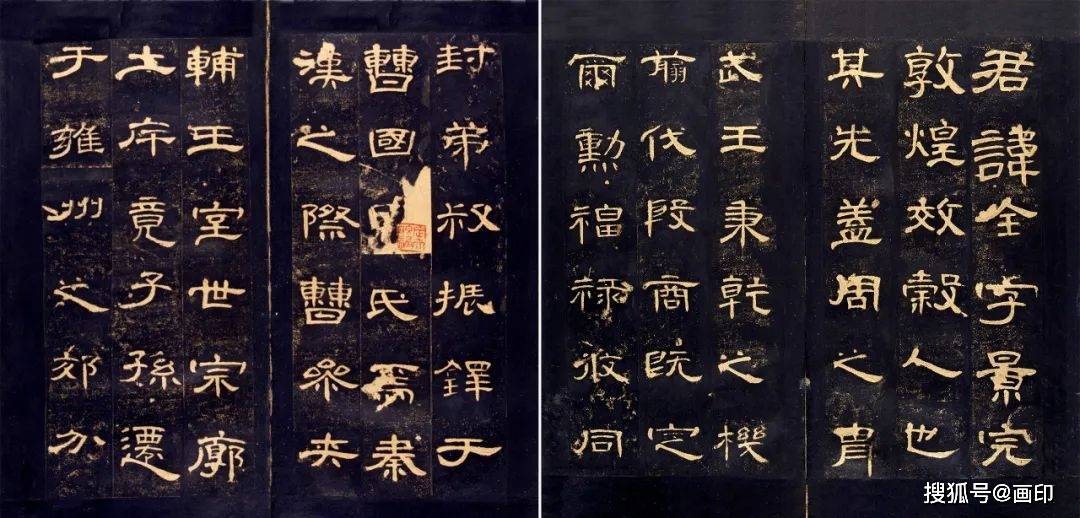 君諱全字景完
敦煌效穀人也
其先蓋周之胄
武王秉乾之機
翦伐殷商既定
爾勳福祿攸同
封弟叔振鐸于
曹國因氏焉秦
漢之際曹參夾
輔王室世宗廓
土斥竟子孫遷
于雍州之郊分
搜狐号@画印